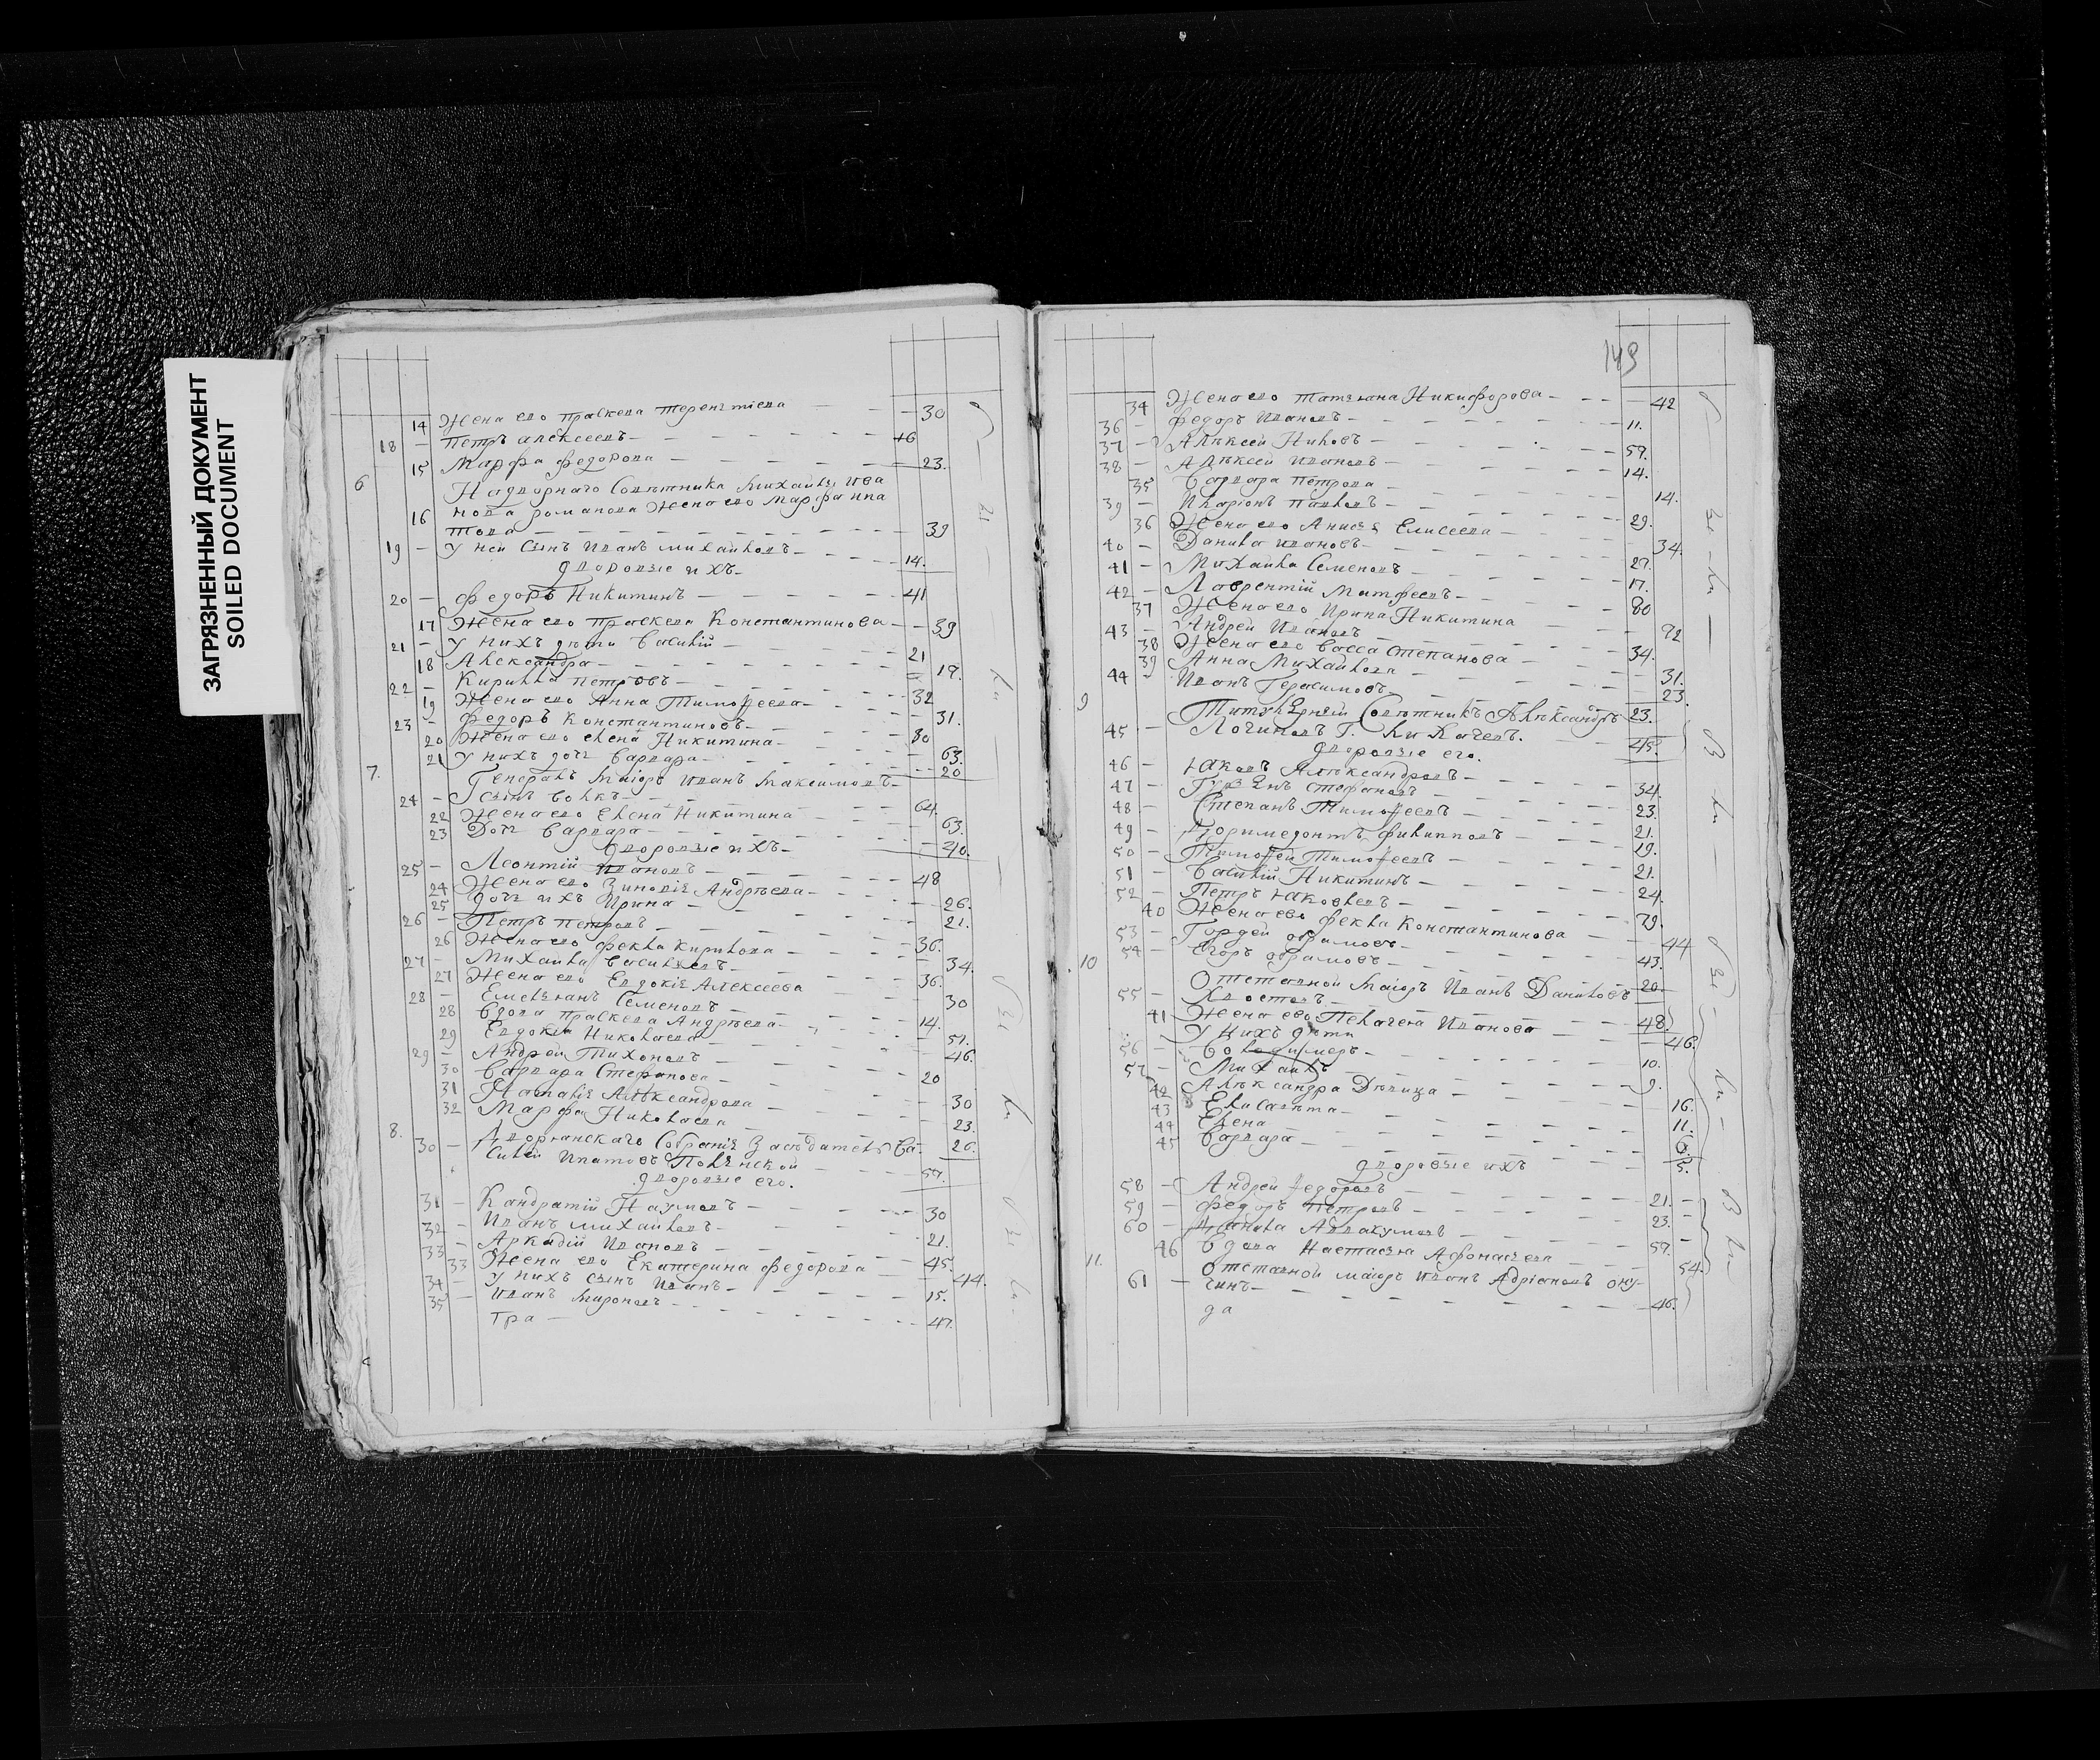 ЗАГРЯЗНЕННЫЙ ДОКУМЕНТ
SOILED DOCUMENT
14 Жена ево праскева терентиева 30
18 Петръ алексеевъ 16
15 Марфа федорова 23.
6 Надворнаго Советника Михайлы ива
16 нова романова Жена ево марфа ипа
това 39
19 У ней сынъ Иванъ михайловъ 14.
дворовые ихъ
20 федоръ Никитинъ 41
17 Жена ево праскева Константинова 39
21 У нихъ дети Василий 21
18 Александра 19.
22 Кирилла петровъ 32
19 Жена ево Анна Тимофеева 31.
23 Федоръ Константиновъ 30
20 Жена ево елена Никитина 63.
21 У нихъ дочь варвара 20
7. Генералъ маіоръ Иванъ Максимовъ
24 64.
22 Жена ево Елена Никитина 63.
23 Дочь варвара 40.
дворовые ихъ
25 Леонтій Ивановъ 48
24 Жена ево Зиновія Андреева 26.
25 дочь ихъ Ирина 21.
26 Петръ петровъ 36.
26 Жена ево фекла кирилова 34.
27 Михайла васильевъ 36.
27 Жена ево Евдокія Алексеева 30
28 Емельянъ Семеновъ 14.
28 Вдова праскева Андреева 51.
29 Евдокия Николаева 46.
29 Андрей Тихоновъ 20
30 варвара Степанова 30
31 Наталія Александрова 23.
32 Марфа Николаева 26.
8. Дворянскаго Собранія Заседатель Ва
30 силей Ипатовъ 59.
дворовые его.
31 Кандратій Наумовъ 30
32 Иванъ михайловъ 21.
33 Аркадій Ивановъ 45.
33 Жена ево Екатерина федорова 44.
34 У нихъ сынъ Иванъ 15.
35 Иванъ Мироновъ 47.
тра
149
34 Жена ево татьяна Никифорова 42
36 федоръ Ивановъ 11.
37 Алексей 59.
38 Алексей Ивановъ 14.
35 варвара петрова 14.
39 Иларіонъ павловъ 29.
36 Жена ево Анисья Елисеева 34.
40 Данила ивановъ 27.
41 Михайла Семеновъ 17.
42 Лаврентій Матфеевъ 80
37 Жена ево Ирина Никитина 72
43 Андрей Ивановъ 34.
38 Жена ево васса степанова 31.
39 Анна Михайлова 23
44 Иванъ Герасимовъ 23.
9 Титулярный Советникъ Александръ
45 Логиновъ Г. 45.
дворовые его.
46 Яковъ Александровъ 34.
47 стефановъ 23.
48 Степанъ Тимофеевъ 21.
49 Доримедонтъ филипповъ 19.
50 Тимофей Тимофеевъ 21.
51 василій Никитинъ 24.
52 Петръ Яковлевъ 79.
40 Жена ево фекла Константинова 44
53 Гордей абрамовъ 43.
54 Егоръ абрамовъ 20
10 Отставной Маіоръ Иванъ Даниловъ
55 Хвостовъ 48
41 Жена ево Пелагея Иванова 46.
У Нихъ дети
56 Володимеръ 10.
57 Михаилъ 9.
42 Александра Девица 16.
43 Елисавета 11.
44 Елена 6.
45 варвара 5.
дворовые ихъ
58 Андрей федоровъ 21.
59 федоръ петровъ 23.
60 Данила Аввакумовъ 57.
46 вдова Настасья Афонасьева 54.
11. Отставной маіоръ иванъ Адріановъ оку
61 чинъ 46.
да